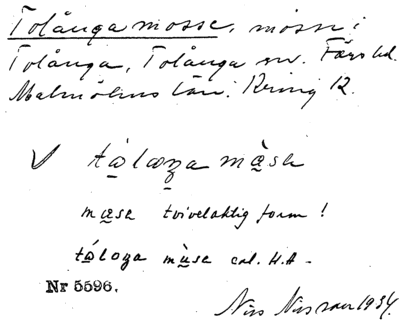 Tolånga mosse, mosse i
Tolånga, Tolånga sn. Färs hd.
Malmöhus län. Kring 12.
√ tå̀loŋa mæ̀sa
mæsa tvivelaktig form!
tǻloŋa mùsa enl. H.A -
Nr 5596.
Nils Nilsson 1934.